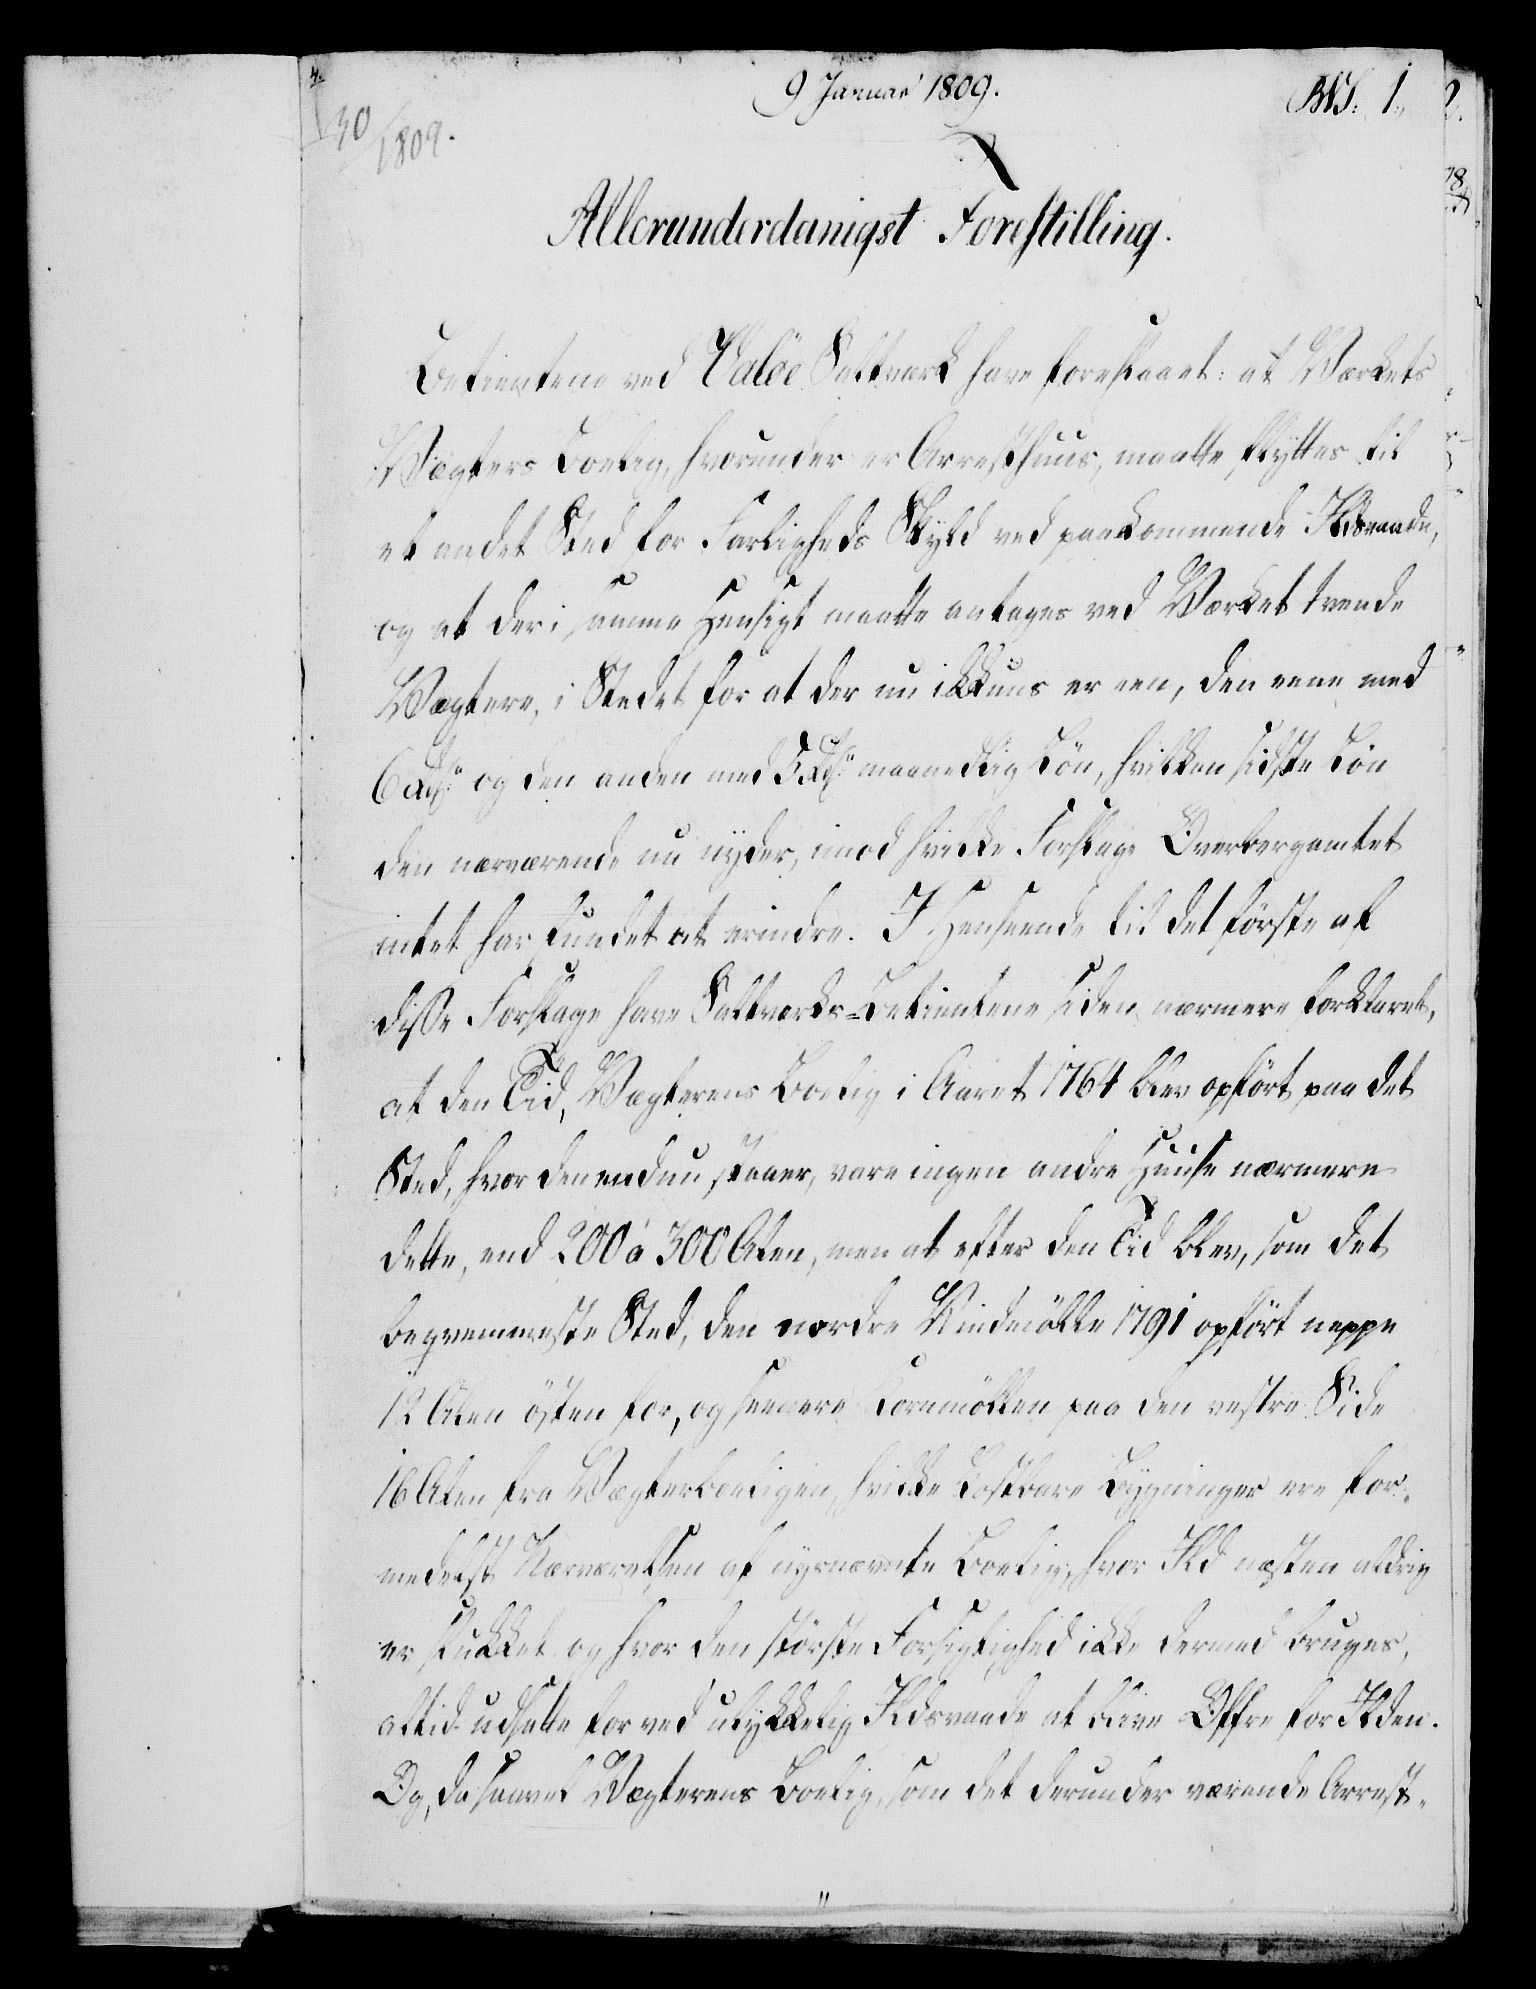 9 Januar 1809.
30/1809.
Allerunderdanigst Forestilling.
Betientene ved Valöe Saltværk have foreslaaet: at Værkets
Vægters Boelig, hvorunder er Arresthuus, maatte flyttes til
et andet Sted for Farligheds Skyld ved paakommende Ildsvaade,
og at der i samme Hensigt maatte antages ved Værket tvende
Vægtere, i Stedet for at der nu ikkuns er een, den eene med
6 Rdr og den anden med 5 Rdr maanedlig Lön, hvilken sidste Lön
den nærværende nu nyder, imod hvilke Forslage Overbergamtet
intet har fundet at erindre. I Henseende til det förste af
disse Forslage have Saltværks-Betientene siden nærmere forklaret,
at den Tid, Vægterens Boelig i Aaret 1764 blev opfört paa det
Sted, hvor den endnu staaer, vare ingen andre Huuse nærmere
dette, end 200 á 300 Alen, men at efter den Tid blev, som det
beqvemmeste Sted, den nordre Vindmölle 1791 opfört neppe
12 Alen östen for, og senere Kornmöllen paa den vestre Side
16 Alen fra Vægterboeligen, hvilke kostbare Bygninger ere for-
medelst Nærværelsen af nysnævnte Boelig, hvor Ild næsten aldrig
er slukket og hvor den störste Forsigtighed ikke dermed bruges,
altid udsatte for ved ulykkelig Ildsvaade at blive Offre for Ilden.
Og, da saavel Vægterens Boelig, som det derunder værende Arrest-